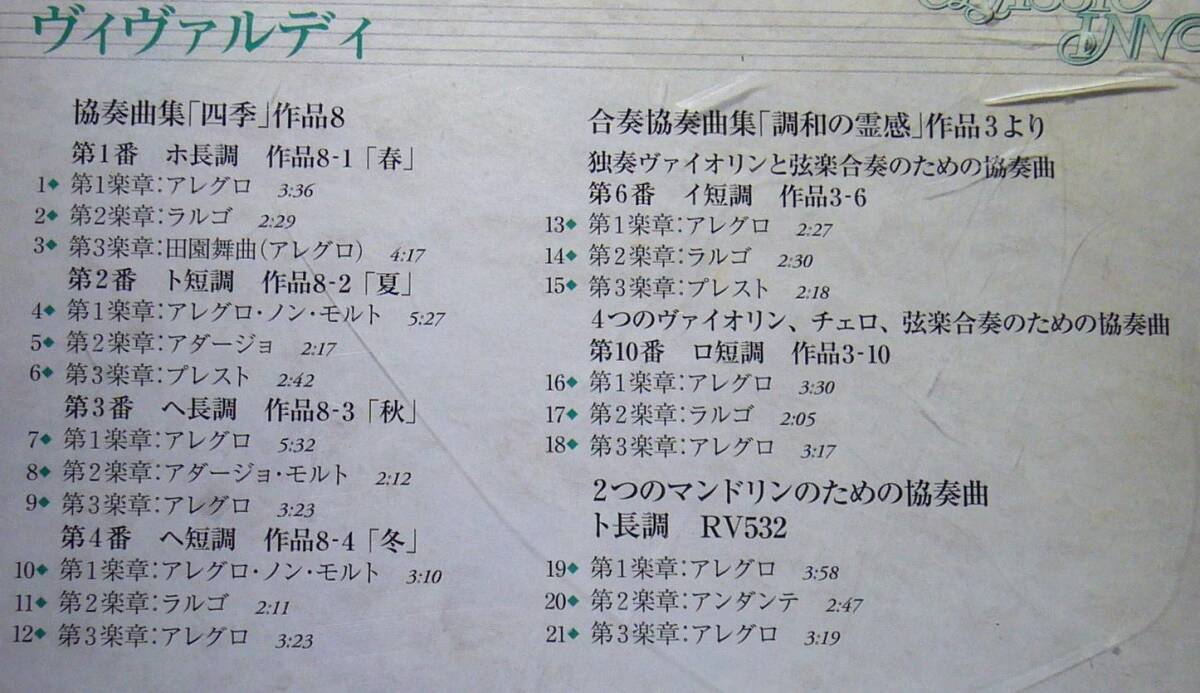 ヴィヴァルディ
協奏曲集「四季」作品8
第1番 ホ長調 作品8-1「春」
1◆ 第1楽章：アレグロ 3:36
2◆ 第2楽章：ラルゴ 2:29
3◆ 第3楽章：田園舞曲（アレグロ） 4:17
第2番 ト短調 作品8-2「夏」
4◆ 第1楽章：アレグロ・ノン・モルト 5:27
5◆ 第2楽章：アダージョ 2:17
6◆ 第3楽章：プレスト 2:42
第3番 ヘ長調 作品8-3「秋」
7◆ 第1楽章：アレグロ 5:32
8◆ 第2楽章：アダージョ・モルト 2:12
9◆ 第3楽章：アレグロ 3:23
第4番 ヘ短調 作品8-4「冬」
10◆ 第1楽章：アレグロ・ノン・モルト 3:10
11◆ 第2楽章：ラルゴ 2:11
12◆ 第3楽章：アレグロ 3:23
合奏協奏曲集「調和の霊感」作品3より
独奏ヴァイオリンと弦楽合奏のための協奏曲
第6番 イ短調 作品3-6
13◆ 第1楽章：アレグロ 2:27
14◆ 第2楽章：ラルゴ 2:30
15◆ 第3楽章：プレスト 2:18
4つのヴァイオリン、チェロ、弦楽合奏のための協奏曲
第10番 ロ短調 作品3-10
16◆ 第1楽章：アレグロ 3:30
17◆ 第2楽章：ラルゴ 2:05
18◆ 第3楽章：アレグロ 3:17
2つのマンドリンのための協奏曲
ト長調 RV532
19◆ 第1楽章：アレグロ 3:58
20◆ 第2楽章：アンダンテ 2:47
21◆ 第3楽章：アレグロ 3:19